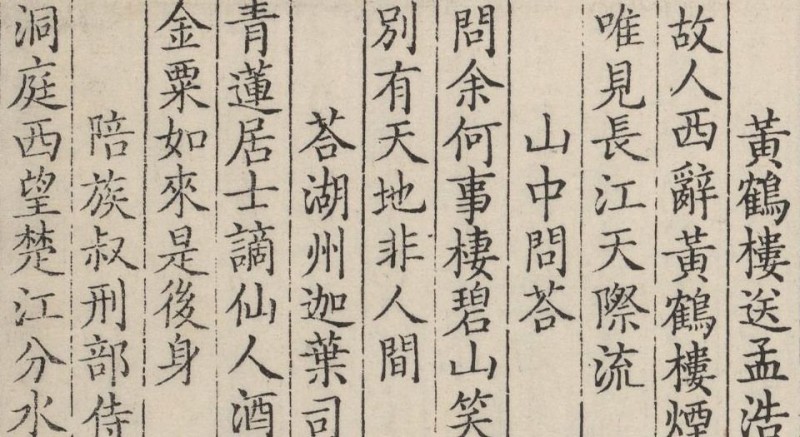 黃鶴樓送孟浩
故人西辭黃鶴樓煙
唯見長江天際流
山中問荅
問余何事棲碧山笑
別有天地非人間
荅湖州迦葉司
青蓮居士謫仙人酒
金粟如來是後身
陪族叔刑部侍
洞庭西望楚江分水